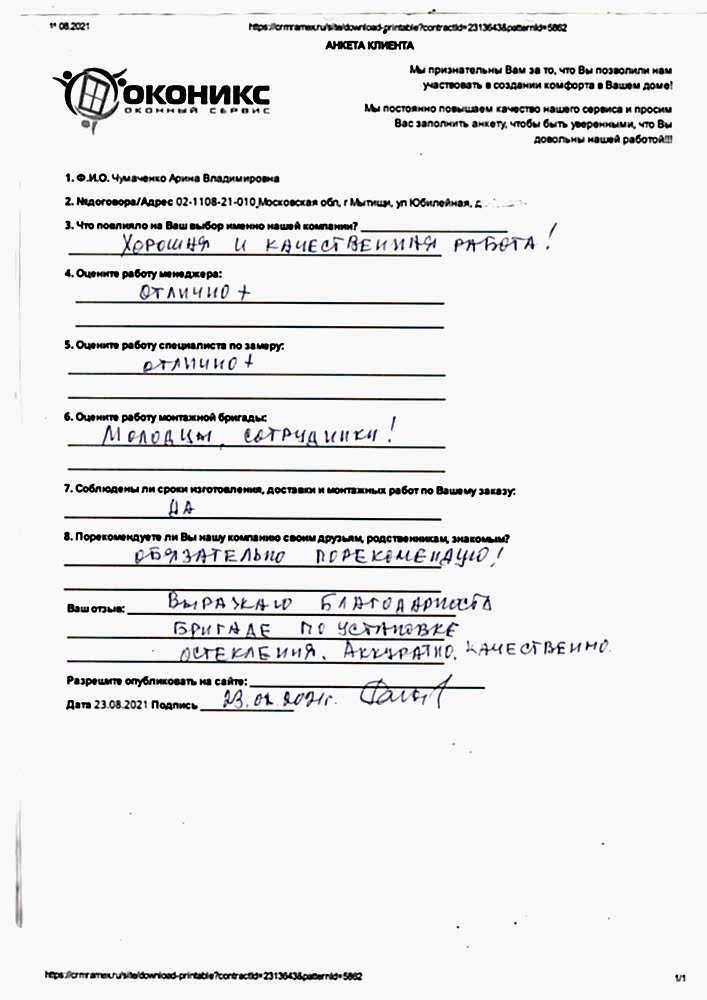 08.2021 https://crmramex.ru/site/download-printable?contractId=2313643&patternId=5862
АНКЕТА КЛИЕНТА
ОКОНИКС
ОКОННЫЙ СЕРВИС
Мы признательны Вам за то, что Вы позволили нам
участвовать в создании комфорта в Вашем доме!
Мы постоянно повышаем качество нашего сервиса и просим
Вас заполнить анкету, чтобы быть уверенными, что Вы
довольны нашей работой!!!
1. Ф.И.О. Чумаченко Арина Владимировна
2. №договора/Адрес 02-1108-21-010,Московская обл, г Мытищи, ул Юбилейная, д
3. Что повлияло на Ваш выбор именно нашей компании?
ХОРОШАЯ И КАЧЕСТВЕННАЯ РАБОТА!
4. Оцените работу менеджера:
ОТЛИЧНО +
5. Оцените работу специалиста по замеру:
ОТЛИЧНО +
6. Оцените работу монтажной бригады:
МОЛОДЦЫ, СОТРУДНИКИ!
7. Соблюдены ли сроки изготовления, доставки и монтажных работ по Вашему заказу:
ДА
8. Порекомендуете ли Вы нашу компанию своим друзьям, родственникам, знакомым?
ОБЯЗАТЕЛЬНО ПОРЕКОМЕНДУЮ!
Ваш отзыв: ВЫРАЖАЮ БЛАГОДАРНОСТЬ
БРИГАДЕ ПО УСТАНОВКЕ
ОСТЕКЛЕНИЯ. АККУРАТНО, КАЧЕСТВЕННО.
Разрешите опубликовать на сайте:
Дата 23.08.2021 Подпись 23.08.2021г.
https://crmramex.ru/site/download-printable?contractId=2313643&patternId=5862 1/1